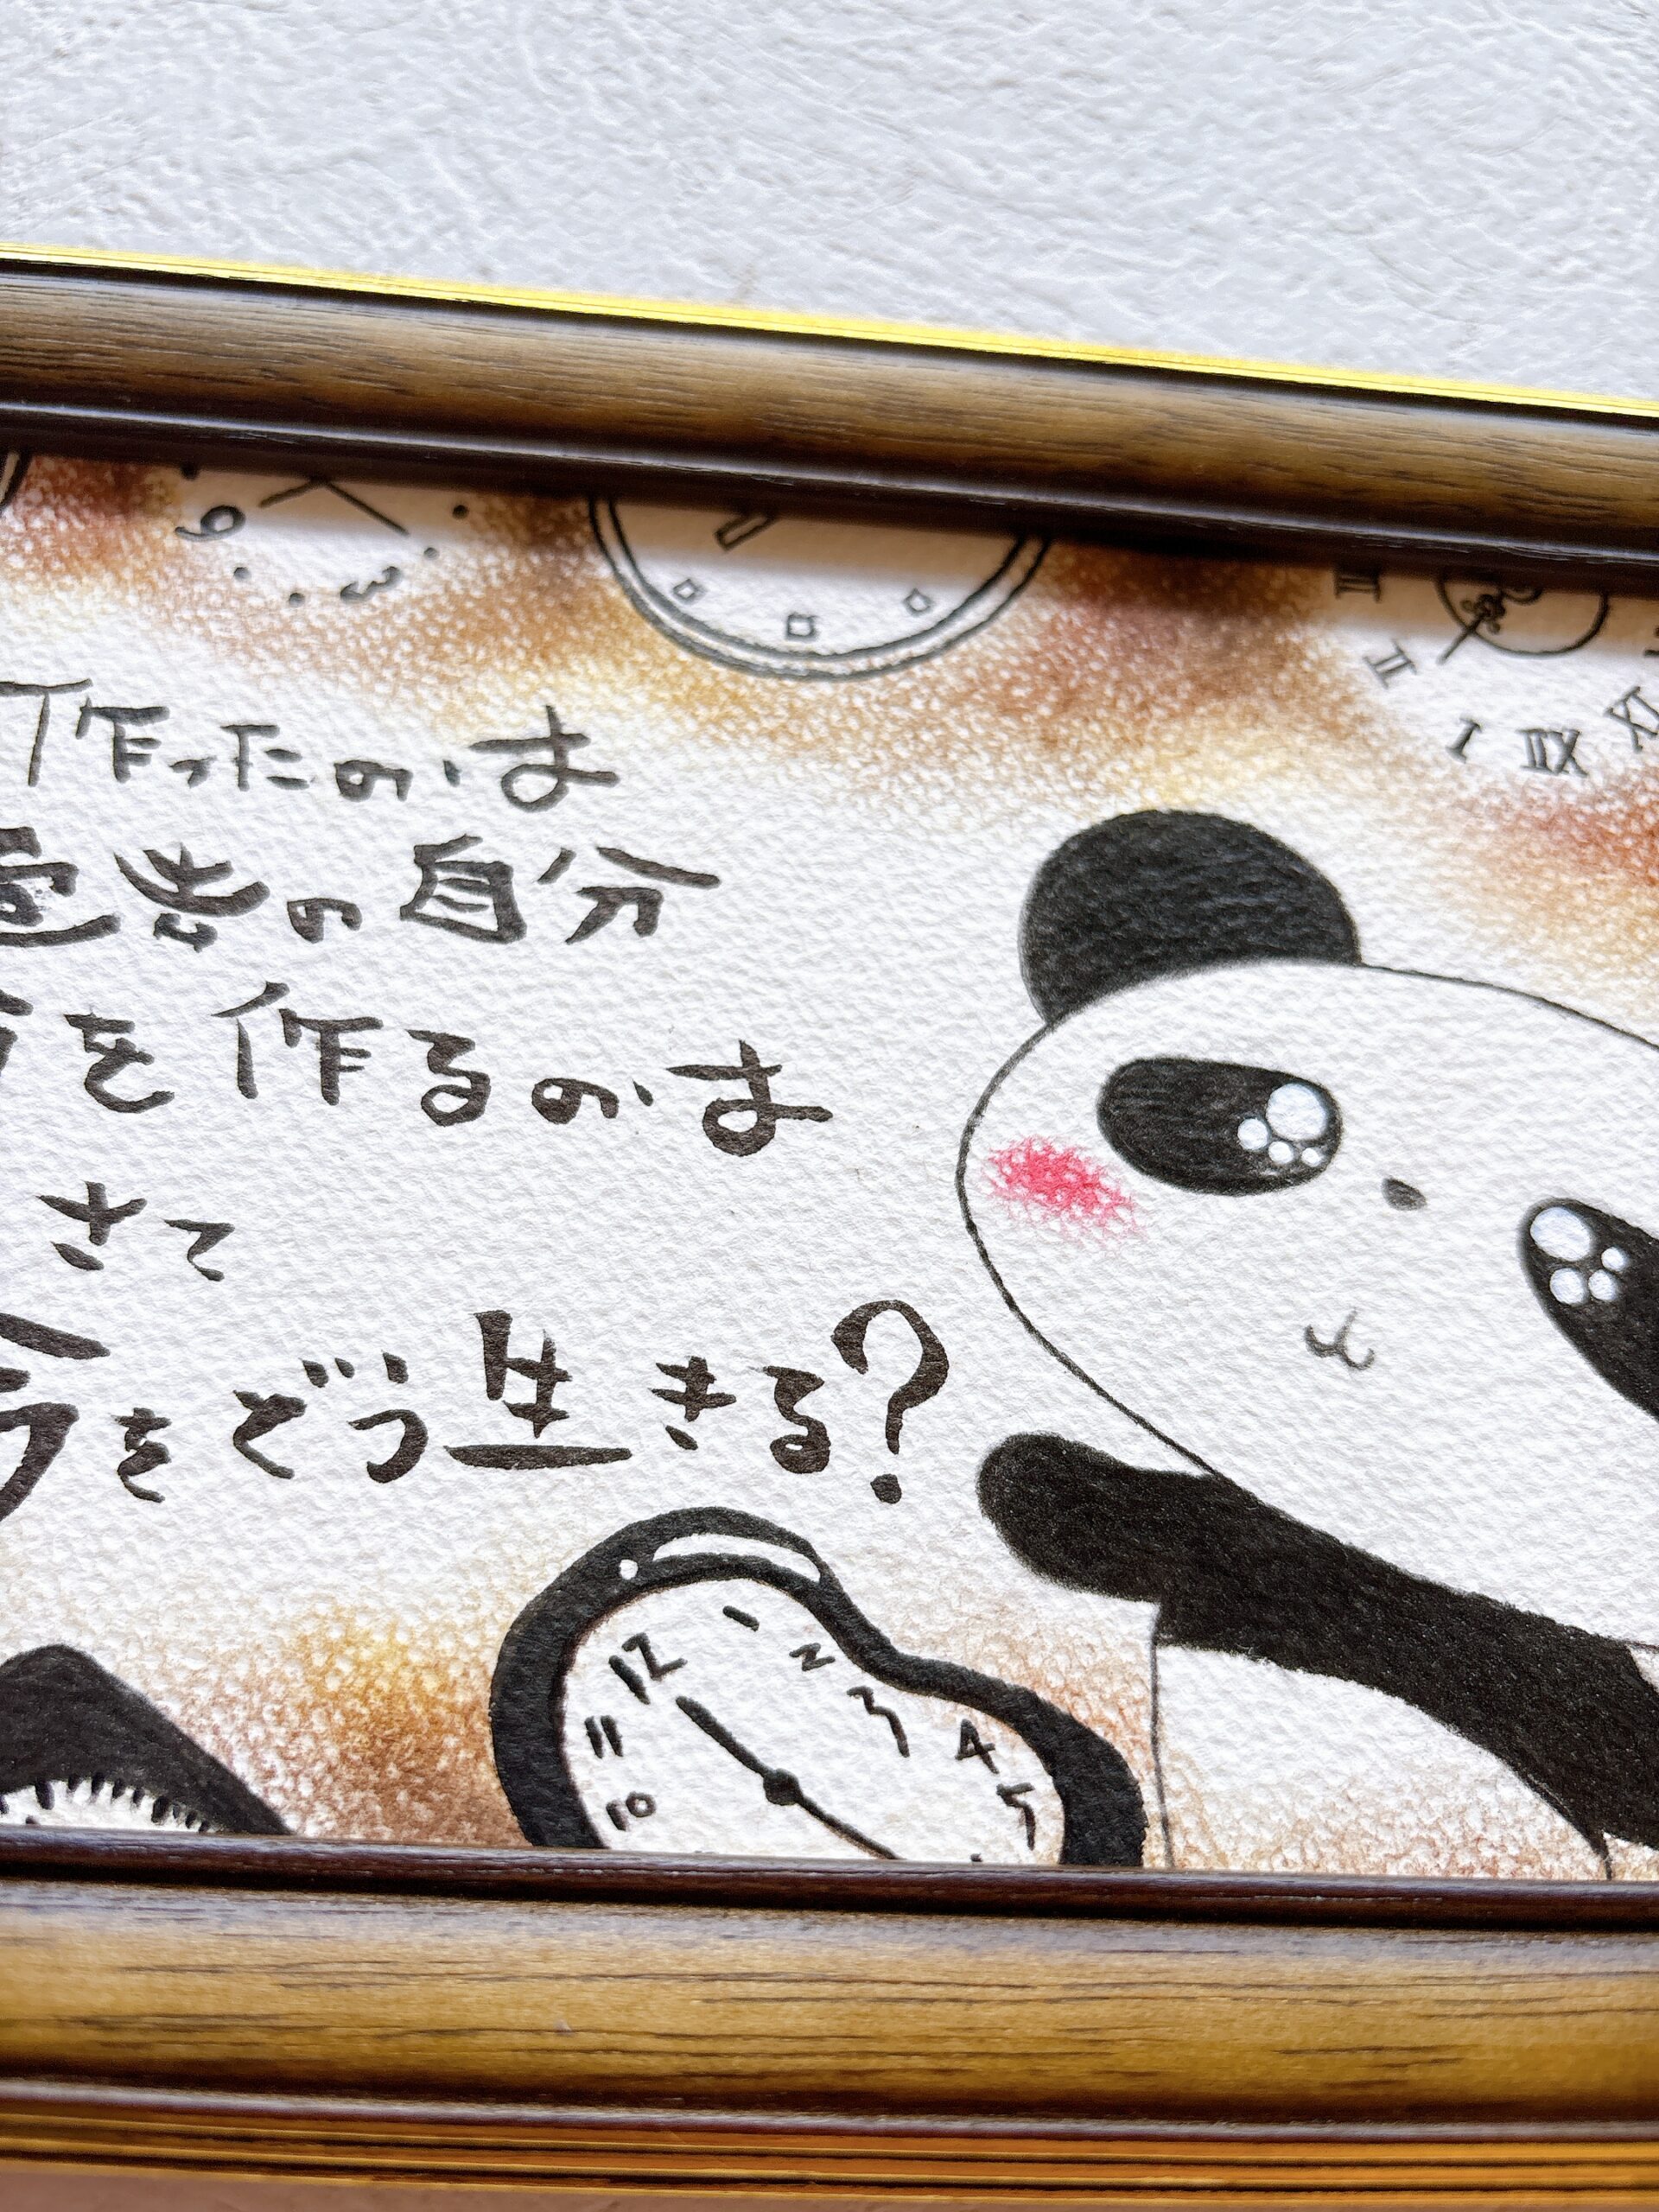 9 3
III II I XII XI
作ったのは
過去の自分
を作るのは
さて
今をどう生きる?
12 1 2 3 4 5 11 10